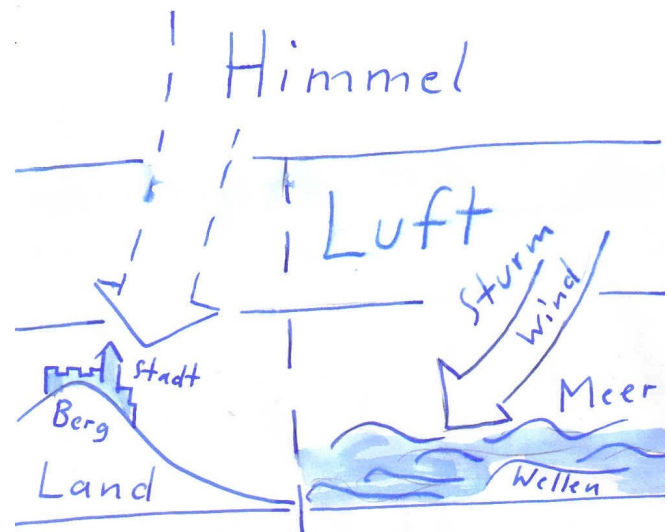 Himmel
Luft
Sturm
Wind
Stadt
Berg
Meer
Land
Wellen